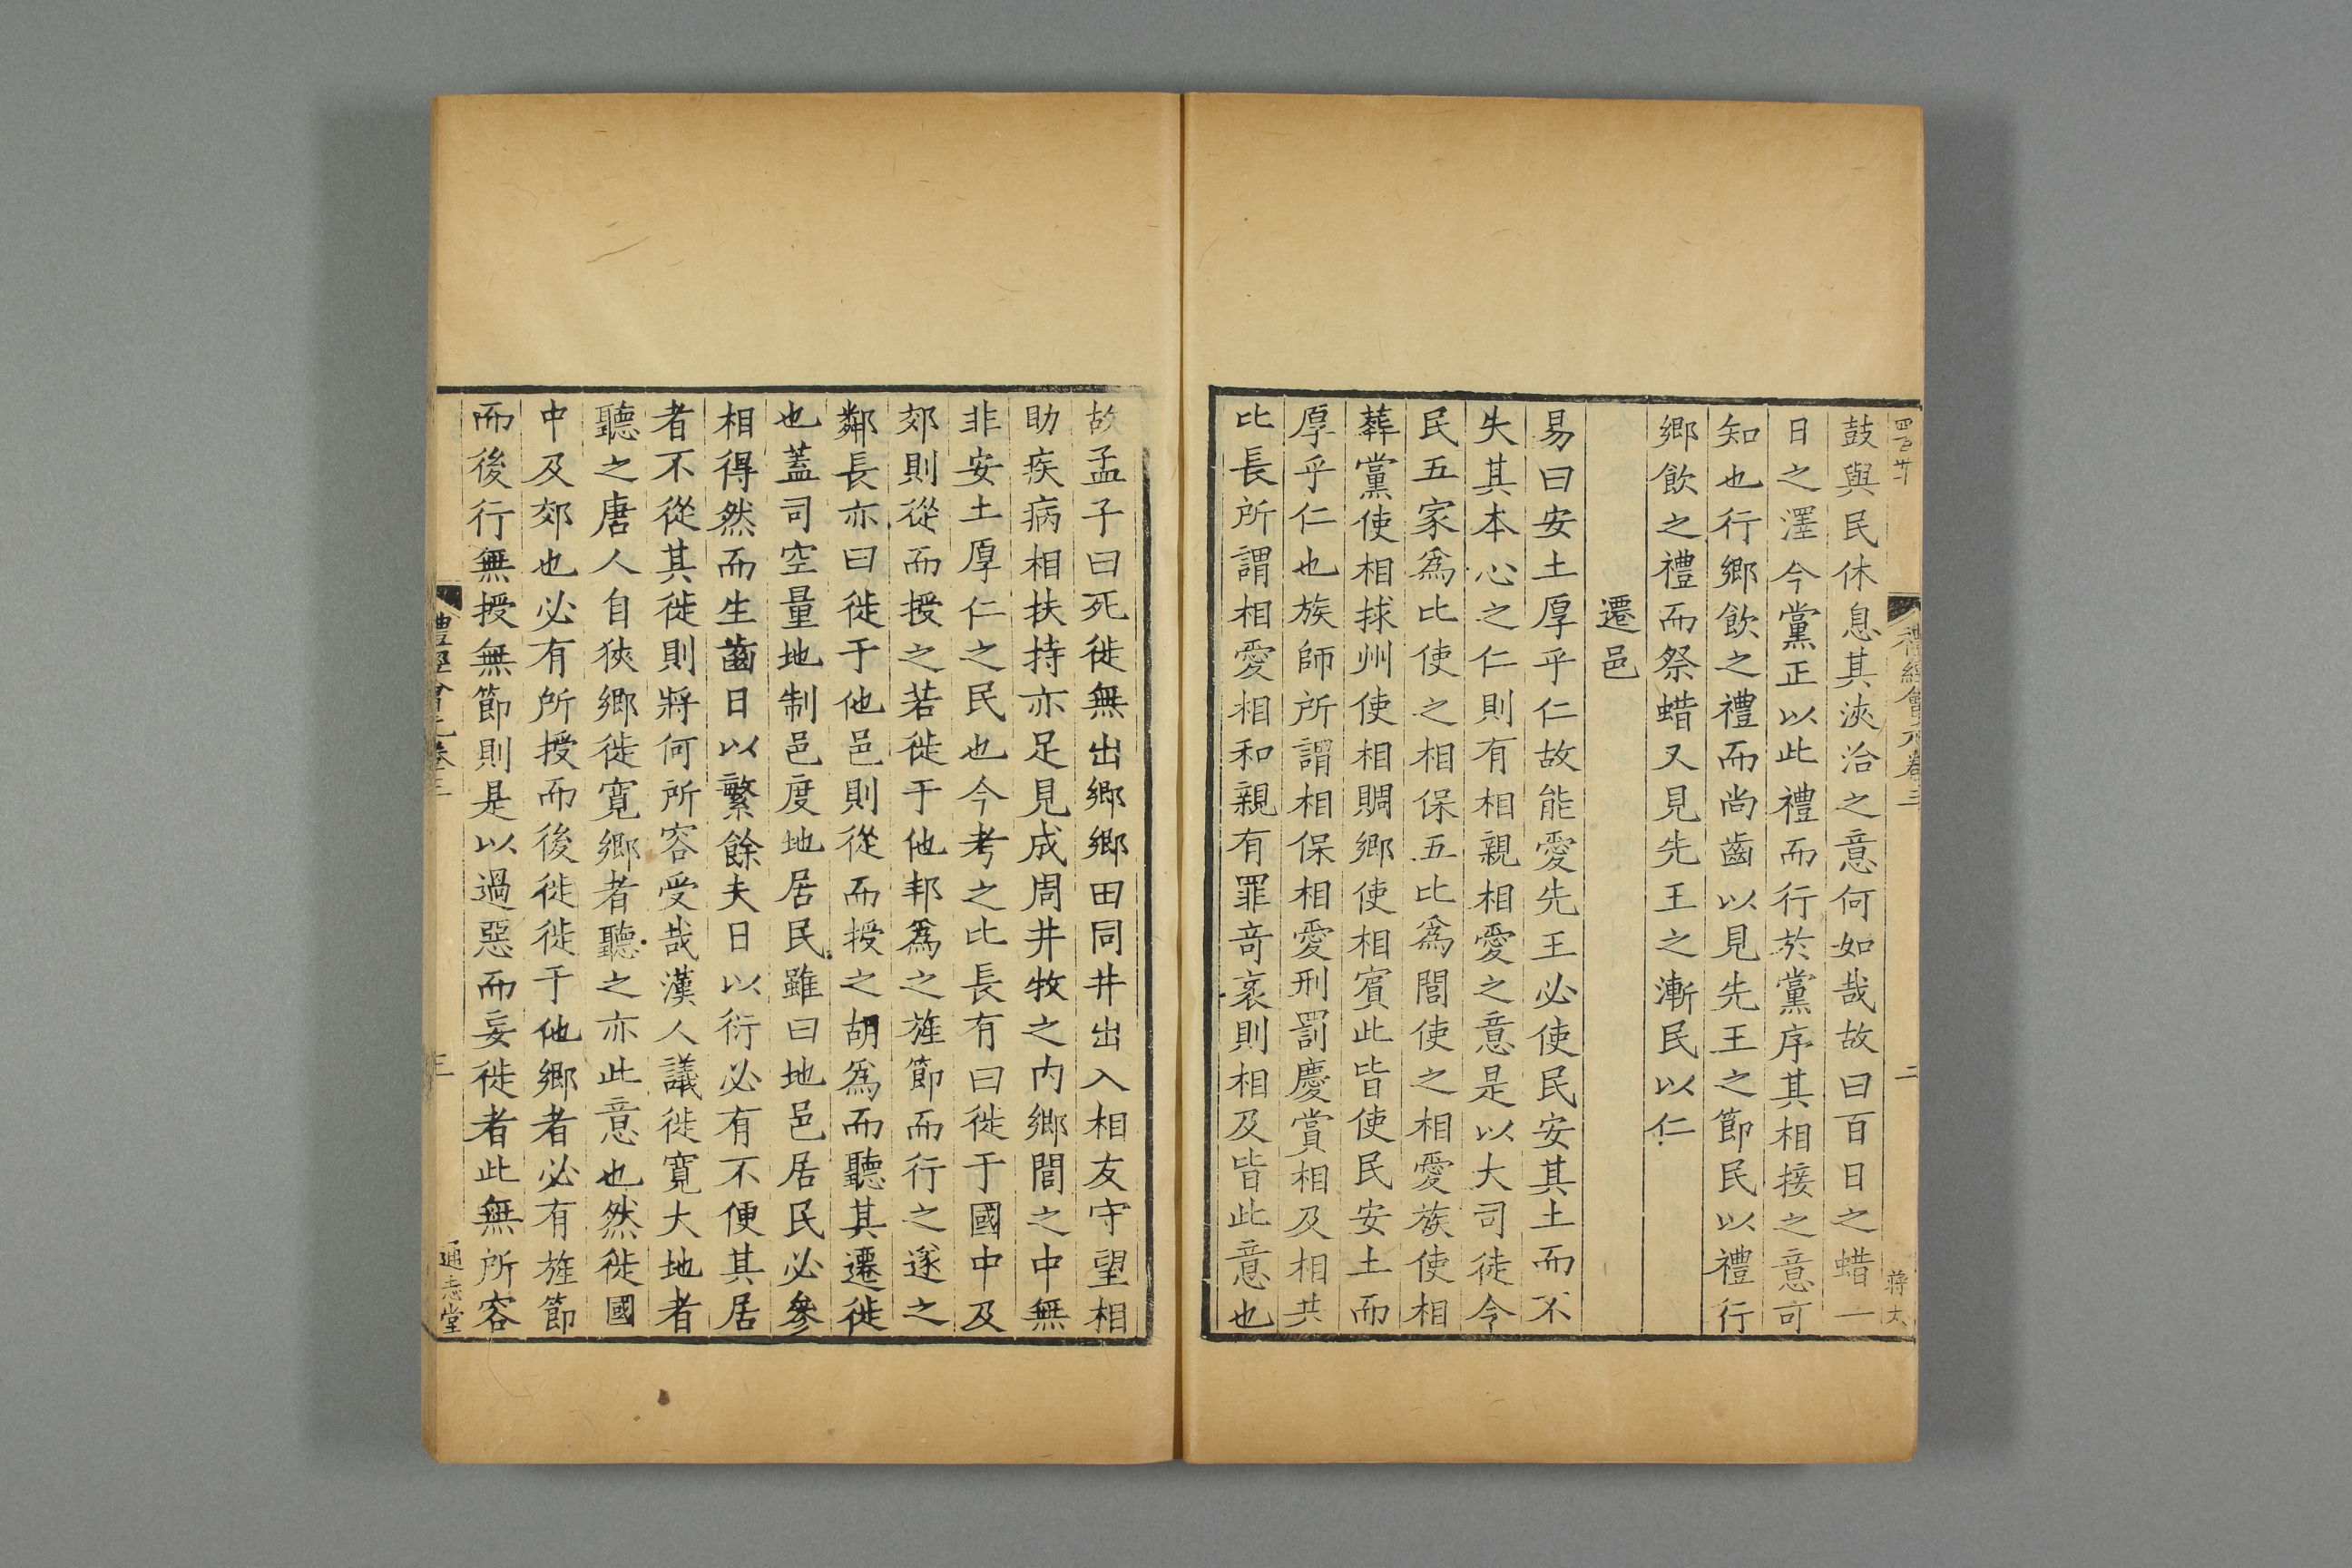 禮經會元卷三
二
蔣太
鼓與民休息其浹洽之意何如哉故曰百日之蜡一
日之澤今黨正以此禮而行於黨序其相接之意可
知也行鄉飲之禮而尚齒以見先王之節民以禮行
鄉飲之禮而祭蜡又見先王之漸民以仁
遷邑
易曰安土厚乎仁故能愛先王必使民安其土而不
失其本心之仁則有相親相愛之意是以大司徒令
民五家爲比使之相保五比爲閭使之相愛族使相
葬黨使相捄州使相賙鄉使相賓此皆使民安土而
厚乎仁也族師所謂相保相愛刑罰慶賞相及相共
比長所謂相愛相和親有罪竒衺則相及皆此意也
故孟子曰死徙無出鄉鄉田同井出入相友守望相
助疾病相扶持亦足見成周井牧之内鄉閭之中無
非安土厚仁之民也今考之比長有曰徙于國中及
郊則從而授之若徙于他邦爲之旌節而行之遂之
鄰長亦曰徙于他邑則從而授之胡爲而聽其遷徙
也蓋司空量地制邑度地居民雖曰地邑居民必參
相得然而生齒日以繁餘夫日以衍必有不便其居
者不從其徙則將何所容受哉漢人議徙寬大地者
聽之唐人自狹鄉徙寬鄉者聽之亦此意也然徙國
中及郊也必有所授而後徙徙于他鄉者必有旌節
而後行無授無節則是以過惡而妄徙者此無所容
禮經會元卷三
三
通志堂